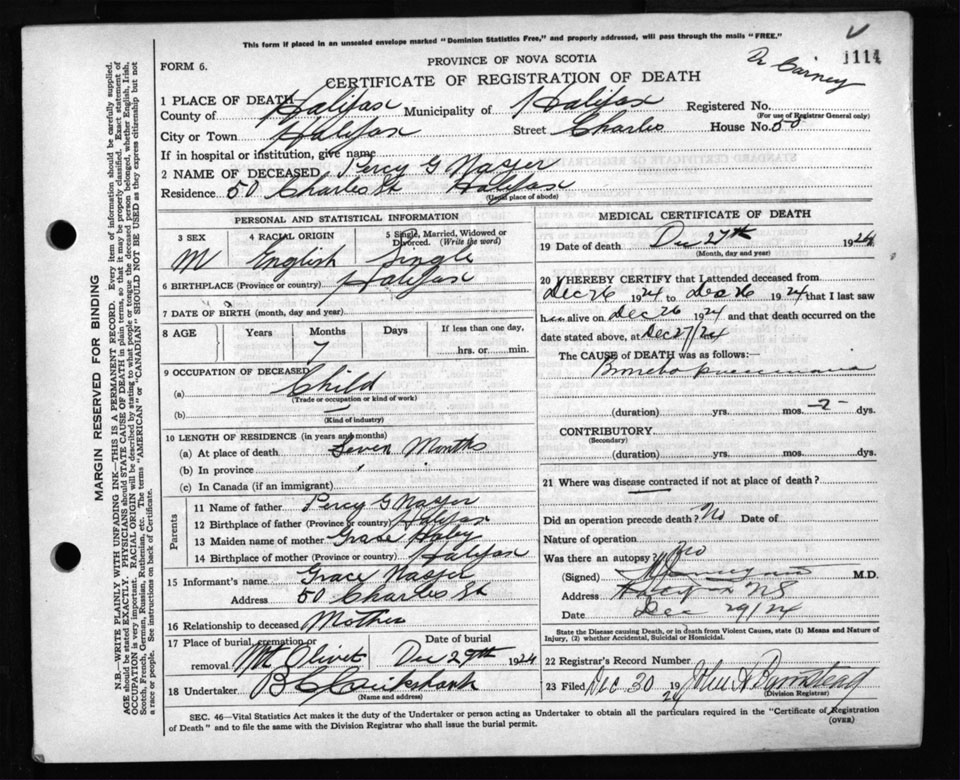 This form if placed in an unsealed envelope marked "Dominion Statistics Free," and properly addressed, will pass through the mails "FREE."
1114
FORM 6.
PROVINCE OF NOVA SCOTIA
CERTIFICATE OF REGISTRATION OF DEATH
Dr Carney
1 PLACE OF DEATH
County of Halifax Municipality of Halifax Registered No.
(For use of Registrar General only)
City or Town Halifax Street Charles House No. 50
If in hospital or institution, give name
2 NAME OF DECEASED Percy G
Residence 50 Charles St Halifax
(Usual place of abode)
PERSONAL AND STATISTICAL INFORMATION
3 SEX 4 RACIAL ORIGIN 5 Single, Married, Widowed or Divorced. (Write the word)
M English Single
6 BIRTHPLACE (Province or country) Halifax
7 DATE OF BIRTH (month, day and year)
8 AGE Years Months Days If less than one day,
7 hrs. or min.
9 OCCUPATION OF DECEASED
(a) Child
(Trade or occupation or kind of work)
(b)
(Kind of industry)
10 LENGTH OF RESIDENCE (in years and months)
(a) At place of death Seven Months
(b) In province " "
(c) In Canada (if an immigrant)
Parents
11 Name of father Percy G
12 Birthplace of father (Province or country) Halifax
13 Maiden name of mother Grace
14 Birthplace of mother (Province or country) Halifax
15 Informant's name Grace
Address 50 Charles St
16 Relationship to deceased Mother
17 Place of burial, cremation or removal Mt Olivet Date of burial Dec 29th 1924
18 Undertaker B C Cruikshank
(Name and address)
MEDICAL CERTIFICATE OF DEATH
19 Date of death Dec 27th 1924
(Month, day and year)
20 I HEREBY CERTIFY that I attended deceased from
Dec 26 1924 to Dec 26 1924 that I last saw
h alive on Dec 26 1924 and that death occurred on
date stated above, at Dec 27/24
The CAUSE of DEATH was as follows:
Broncho pneumonia
(duration) yrs. mos. 2 dys.
CONTRIBUTORY
(Secondary)
(duration) yrs. mos. dys.
21 Where was disease contracted if not at place of death?
Did an operation precede death? No Date of
Nature of operation
Was there an autopsy? No
(Signed) M.D.
Address Halifax NS
Date Dec 29/24
State the Disease causing Death, or in death from Violent Causes, state (1) Means and Nature of Injury, (2) whether Accidental, Suicidal or Homicidal.
22 Registrar's Record Number
23 Filed Dec 30 1924 John A Barnstead
(Division Registrar)
SEC. 46—Vital Statistics Act makes it the duty of the Undertaker or person acting as Undertaker to obtain all the particulars required in the "Certificate of Registration
of Death" and to file the same with the Division Registrar who shall issue the burial permit.
(OVER)
MARGIN RESERVED FOR BINDING
N.B.—WRITE PLAINLY WITH UNFADING INK—THIS IS A PERMANENT RECORD. Every item of information should be carefully supplied.
AGE should be stated EXACTLY. PHYSICIANS should STATE CAUSE OF DEATH in plain terms, so that it may be properly classified. Exact statement of
OCCUPATION is very important. RACIAL ORIGIN will be described by stating to what people or tongue the deceased person belonged, whether English, Irish,
Scotch, French, German, Russian, Ruthenian, etc. The terms "AMERICAN" or "CANADIAN" SHOULD NOT BE USED as they express citizenship but not
a race or people. See instructions on back of Certificate.